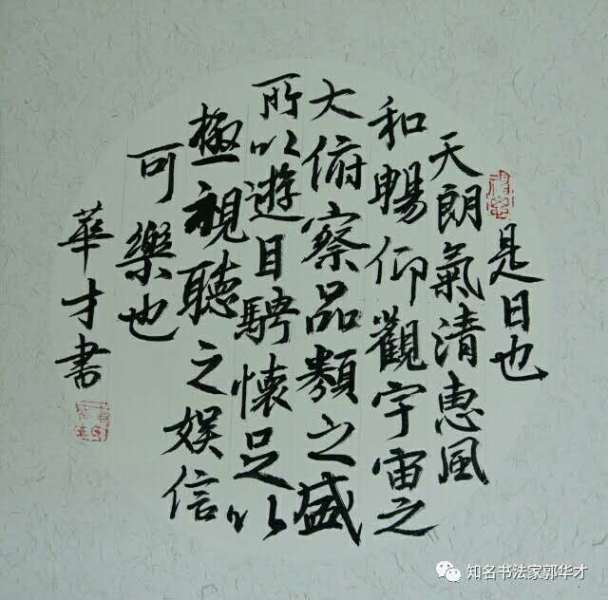 是日也
天朗氣清惠風
和暢仰觀宇宙之
大俯察品類之盛
所以遊目騁懷足以
極視聽之娱信
可樂也
華才書
知名书法家郭华才